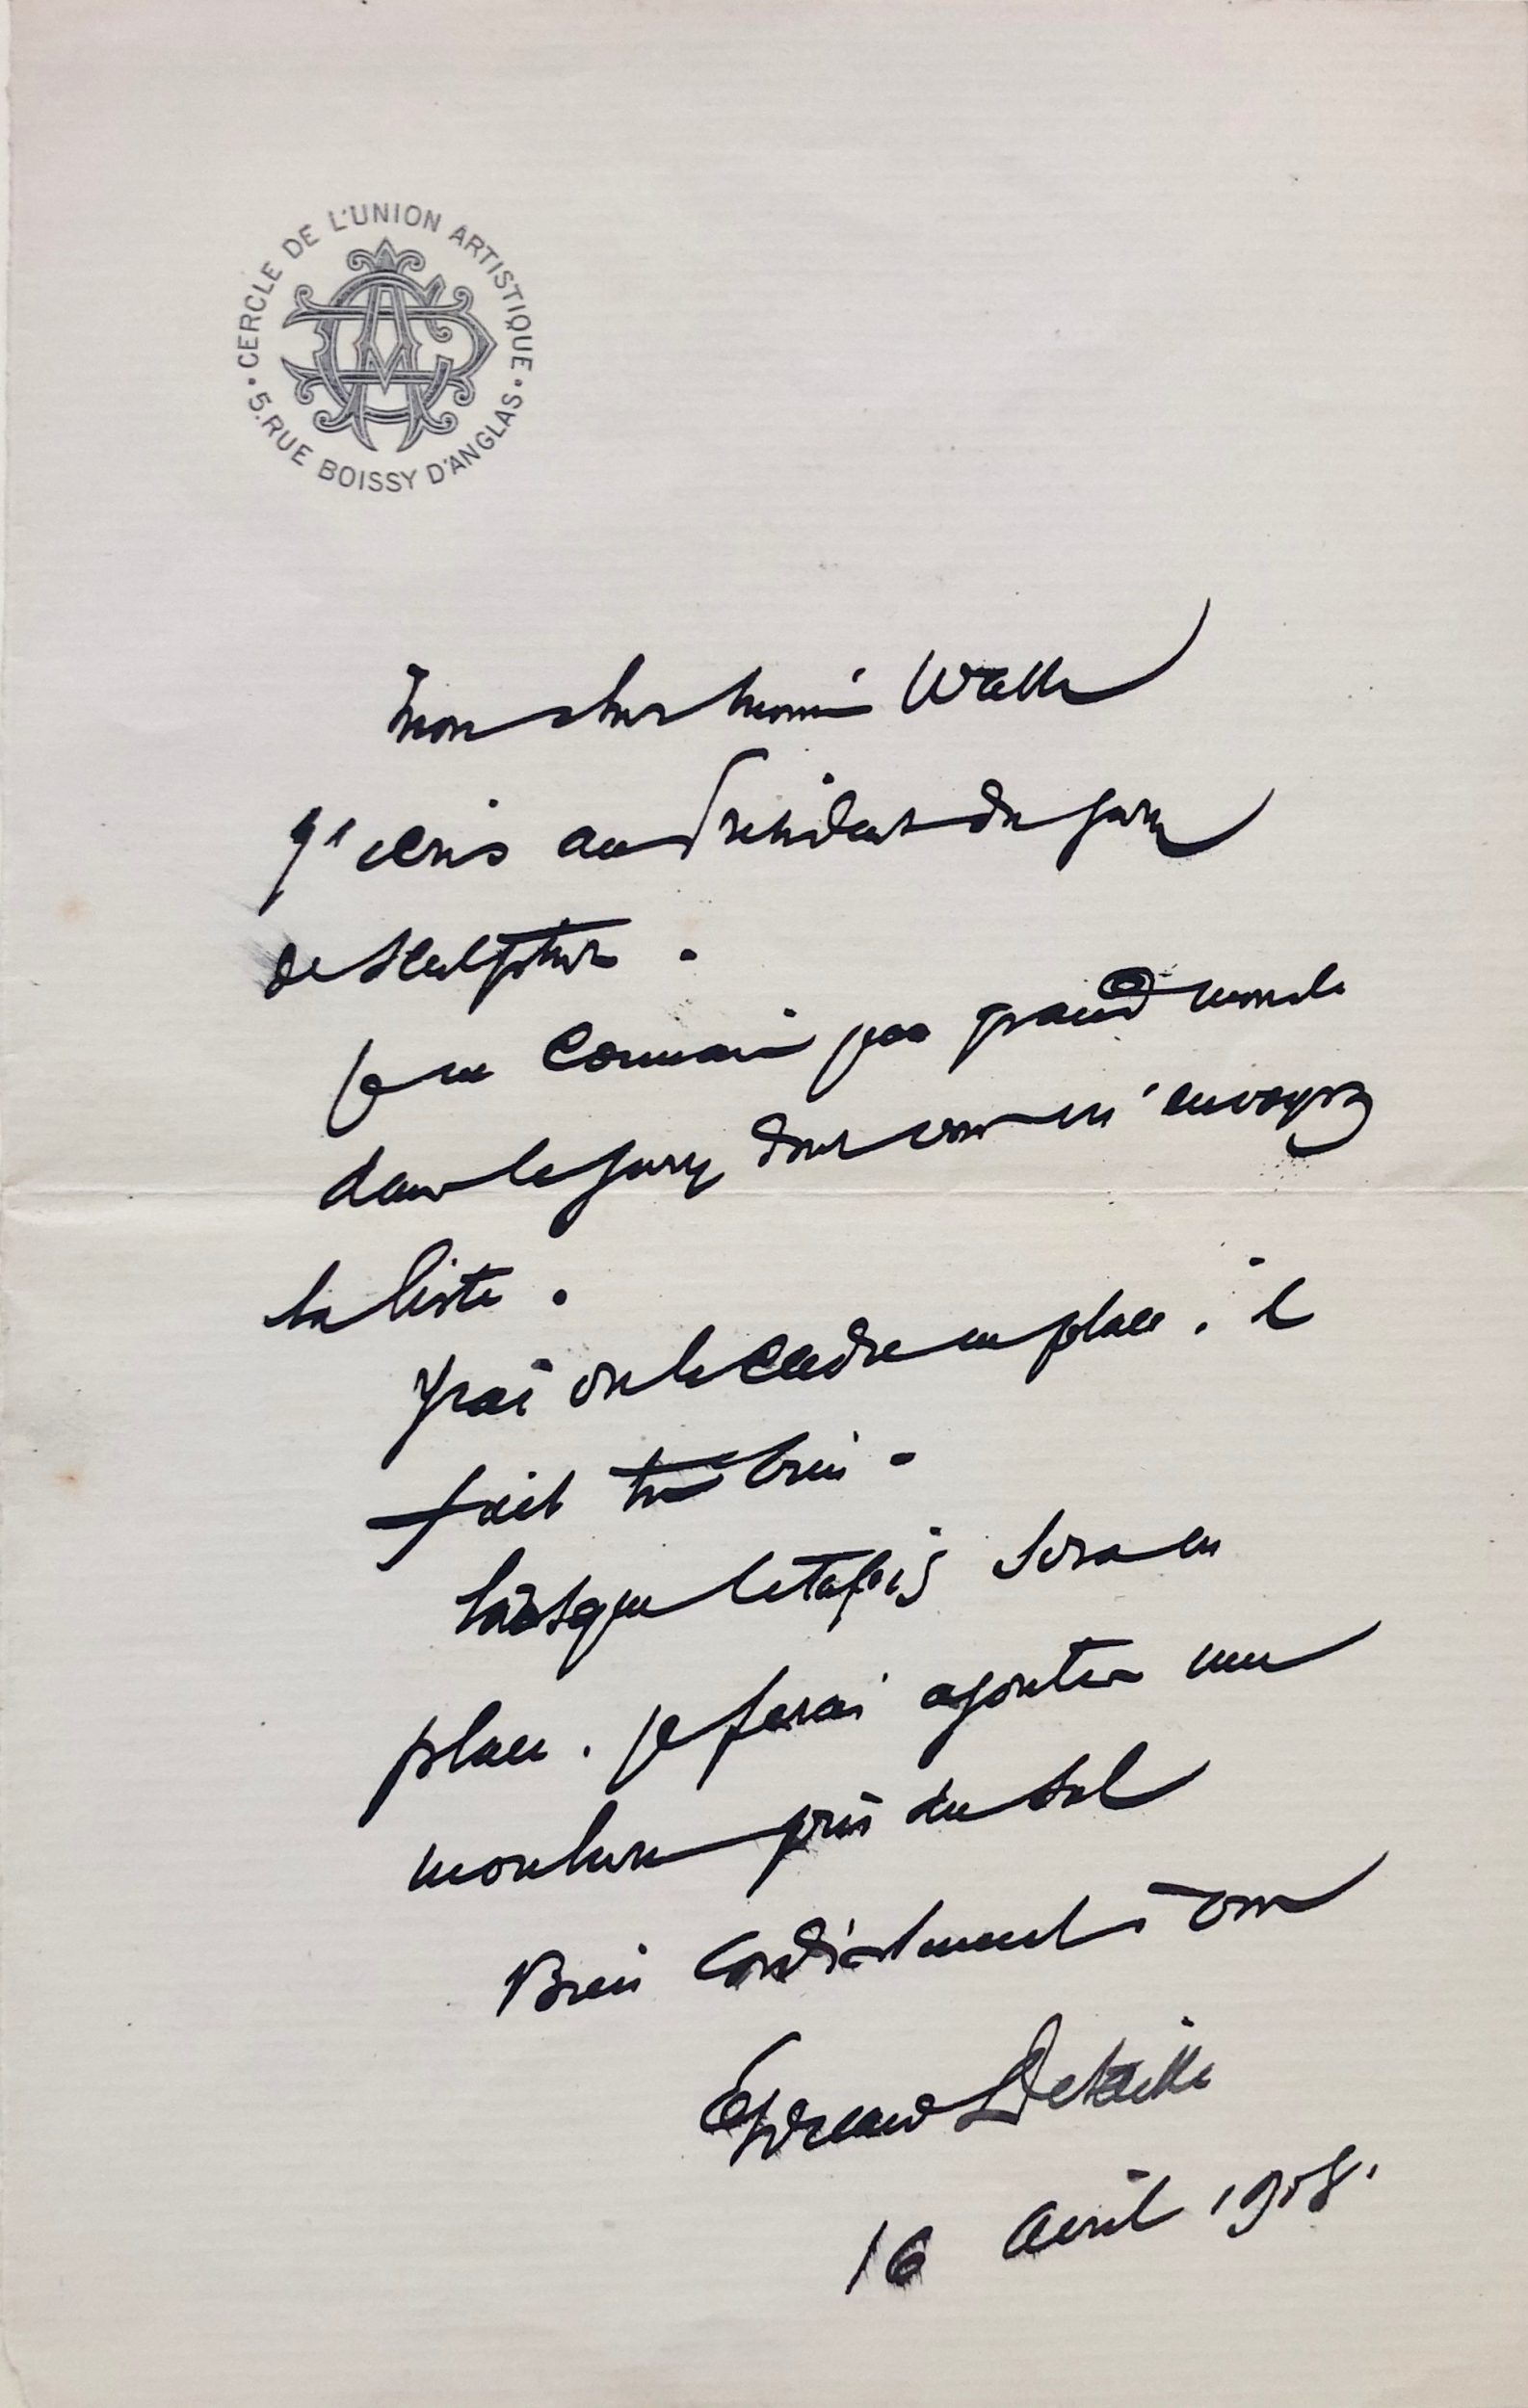 CERCLE DE L'UNION ARTISTIQUE
5. RUE BOISSY D'ANGLAS
Mon cher
J'écris au Président du Jury
de Sculpture.
Je ne connais pas grand monde
dans le Jury dont vous m'envoyez
la liste.
J'ai vu le cadre en place. il
fait très bien.
Lorsque le tapis sera en
place. je ferai ajouter une
moulure près du sol
Bien cordialement à vous
Edouard Detaille
16 avril 1908.